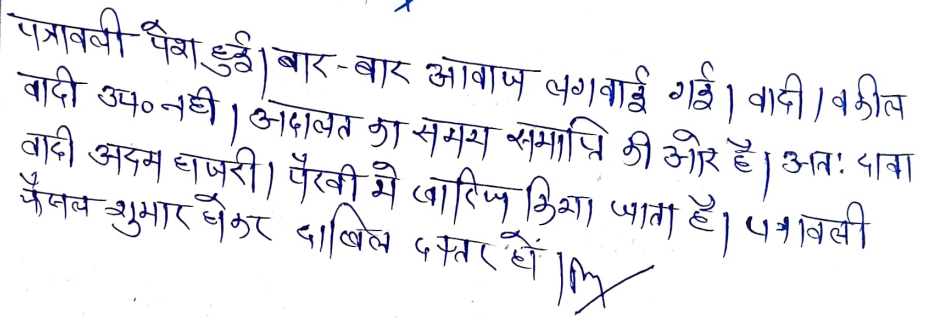 पत्रावली पेश हुई। बार-बार आवाज लगवाई गई। वादी/वकील
वादी उप० नही। अदालत का समय समाप्ति की ओर है। अतः दावा
वादी अदम हाजरी/पैरवी मे खारिज किया जाता है। पत्रावली
फैसल शुमार होकर दाखिल दफ्तर हो।